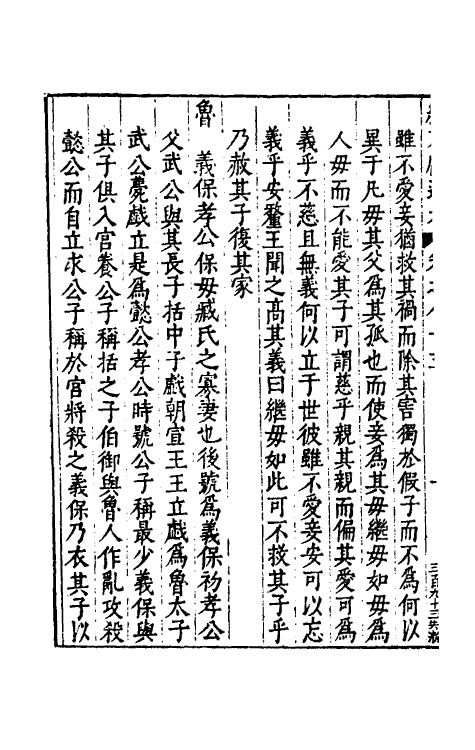 雖不愛妾猶救其禍而除其害獨於假子而不爲何以
異于凡毋其父爲其孤也而使妾爲其毋繼毋如毋爲
人毋而不能愛其子可謂慈乎親其親而偏其愛可爲
義乎不慈且無義何以立于世彼雖不愛妾安可以忘
義乎安釐王聞之高其義曰繼毋如此可不救其子乎
乃赦其子復其家
魯 義保孝公保毋臧氏之寡妻也後號爲義保初孝公
父武公與其長子括中子戲朝宣王王立戲爲魯太子
武公薨戲立是爲懿公孝公時號公子稱最少義保與
其子俱入宮養公子稱括之子伯御與魯人作亂攻殺
懿公而自立求公子稱於宮將殺之義保乃衣其子以